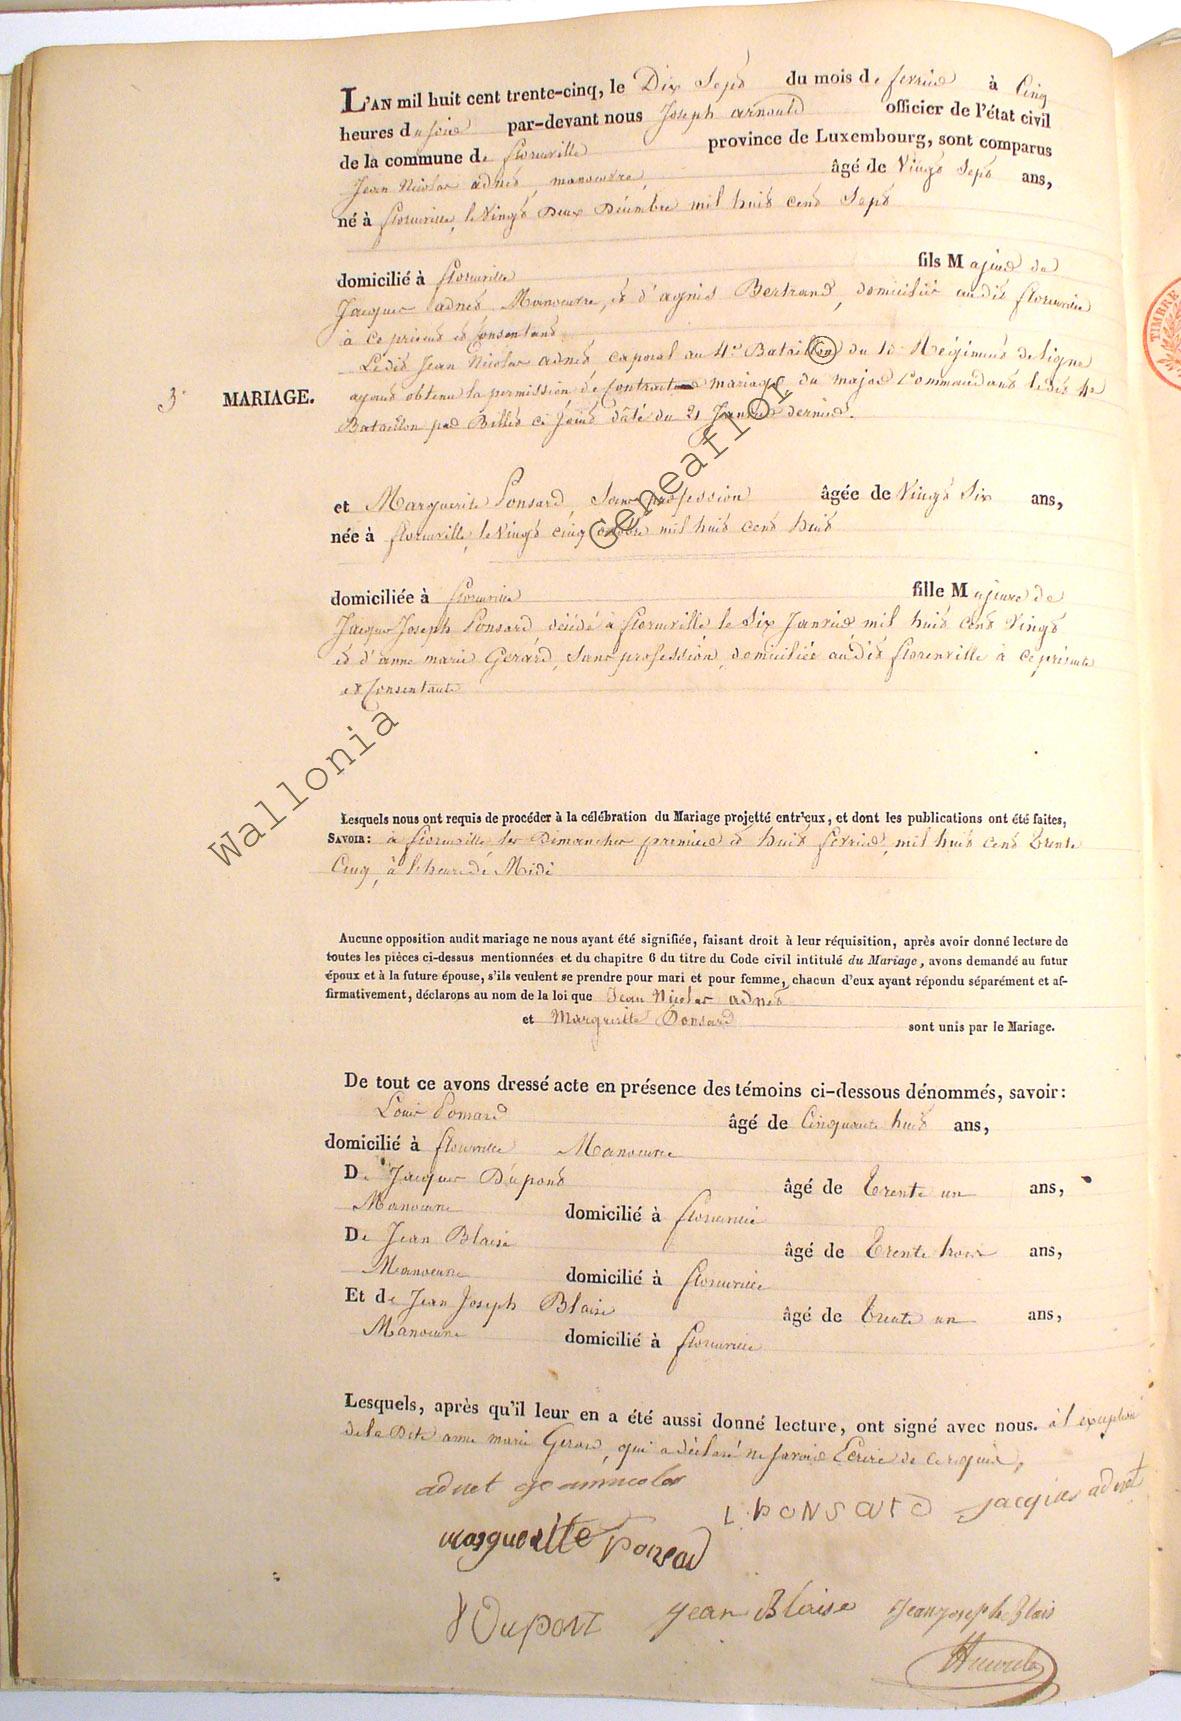 L'AN mil huit cent trente-cinq, le Dix Sept du mois de fevrier à Cinq
heures du soir par-devant nous Joseph arnould officier de l'état civil
de la commune de florenville province de Luxembourg, sont comparus
Jean Nicolas adnet, manoeuvre, âgé de Vingt Sept ans,
né à florenville, le Vingt Deux Décembre mil huit cent Sept
domicilié à florenville fils Majeur de
Jacques adnet, Manoeuvre, et d'agnès Bertrand, domiciliés audit florenville
à ce présens et Consentans
Ledit Jean Nicolas adnet caporal au 4e Bataillon du Régiment de ligne
ayant obtenu la permission de Contracter mariage du major Commandant ledit 4e
Bataillon par Billet ci joint daté du 21 Janvier dernier.
3e MARIAGE.
et Marguerite Ponsard, Sans profession âgée de Vingt Six ans,
née à florenville, le Vingt cinq octobre mil huit cent huit
domiciliée à florenville fille Majeure de
Jacques Joseph Ponsard, décédé à florenville le Six Janvier mil huit cent Vingt
et d'anne marie Gerard, Sans profession, domiciliée audit florenville à ce présente
et Consentante
Lesquels nous ont requis de procéder à la célébration du Mariage projetté entr'eux, et dont les publications ont été faites,
SAVOIR: à florenville les Dimanches premier et huit fevrier, mil huit cent Trente
Cinq, à l'heure de Midi
Aucune opposition audit mariage ne nous ayant été signifiée, faisant droit à leur réquisition, après avoir donné lecture de
toutes les pièces ci-dessus mentionnées et du chapitre 6 du titre du Code civil intitulé du Mariage, avons demandé au futur
époux et à la future épouse, s'ils veulent se prendre pour mari et pour femme, chacun d'eux ayant répondu séparément et af-
firmativement, déclarons au nom de la loi que Jean Nicolas adnet
et Marguerite Ponsard sont unis par le Mariage.
De tout ce avons dressé acte en présence des témoins ci-dessous dénommés, savoir:
Louis Ponsard âgé de Cinquante huit ans,
domicilié à florenville Manoeuvre
De Jacques Dupont âgé de Trente un ans,
Manoeuvre domicilié à florenville
De Jean Blaise âgé de Trente trois ans,
Manoeuvre domicilié à florenville
Et de Jean Joseph Blaise âgé de Trente un ans,
Manoeuvre domicilié à florenville
Lesquels, après qu'il leur en a été aussi donné lecture, ont signé avec nous. à l'exception
de la Dite anne marie Gerard, qui a déclaré ne savoir Ecrire de ce requise,
adnet jeannicolas
L PONSARD jacques adnet
marguerite Ponsard
J Dupont jean Blaise jeanjosephe Blais
TIMBRE
Wallonia Geneaflor